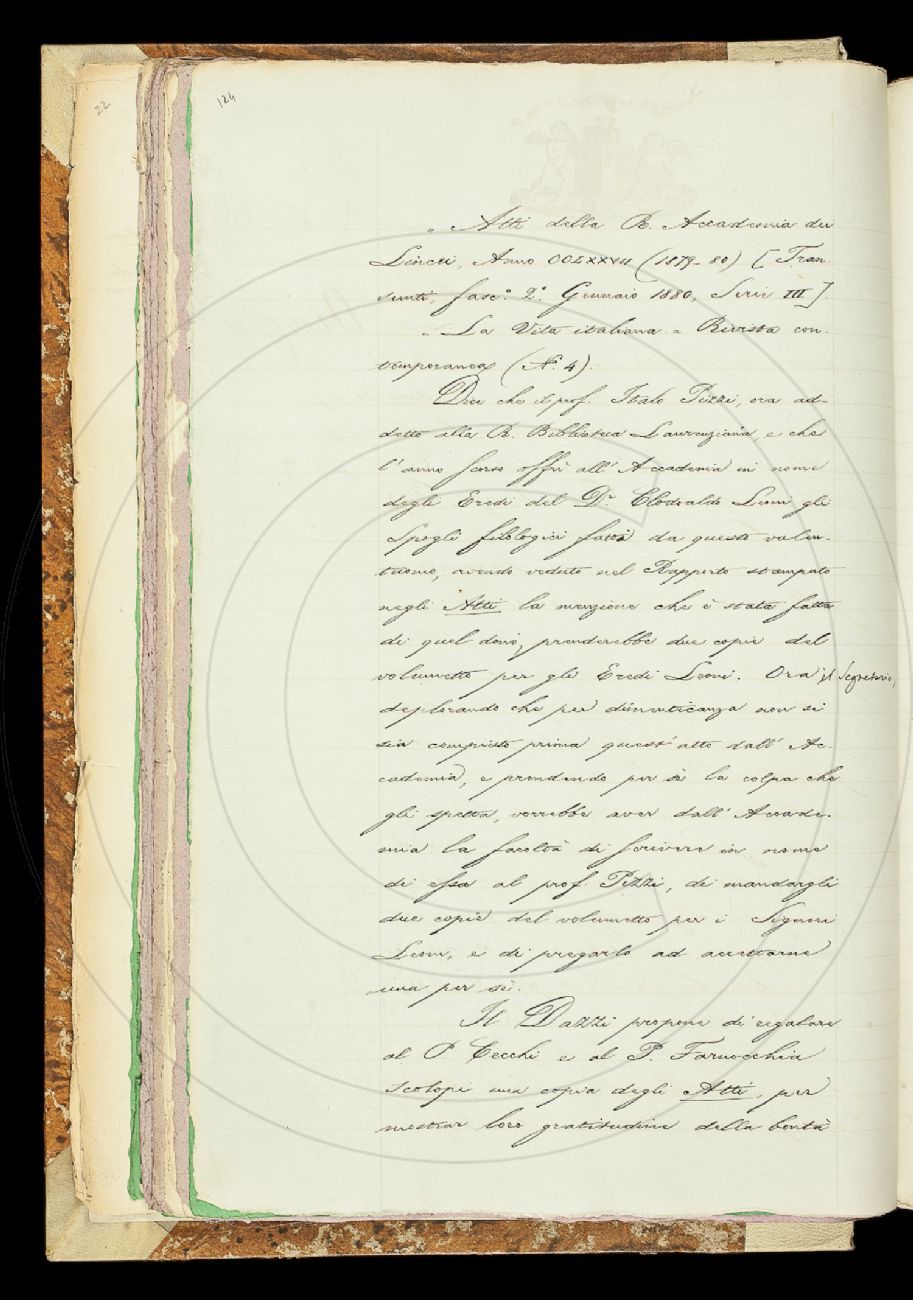 22
124
„ Atti della R. Accademia dei
Lincei, Anno CCLXXVII (1879-80) [Tran-
sunti, fasc.º 2.º Gennaio 1880, Serie III].
„ La Vita italiana. = Rivista con-
temporanea (N.º 4).
Dice che il prof. Italo Pizzi, ora ad-
detto alla R. Biblioteca Laurenziana, e che
l'anno scorso offrì all'Accademia in nome
degli Eredi del D.r Clodoaldo Leoni gli
Spogli filologici fatti da questo valen-
tuomo, avendo veduto nel Rapporto stampato
negli Atti la menzione che è stata fatta
di quel dono, prenderebbe due copie del
volumetto per gli Eredi Leoni. Ora il Segretario,
deplorando che per dimenticanza non si
sia compiuto prima quest'atto dall'Ac-
cademia, e prendendo per sè la colpa che
gli spetta, vorrebbe aver dall'Accade-
mia la facoltà di scrivere in nome
di essa al prof. Pizzi, di mandargli
due copie del volumetto per i Signori
Leoni, e di pregarlo ad accettarne
una per sè.
Il Dazzi propone di regalare
al P. Cecchi e al P.
Scolopi una copia degli Atti, per
mostrar loro gratitudine della bontà